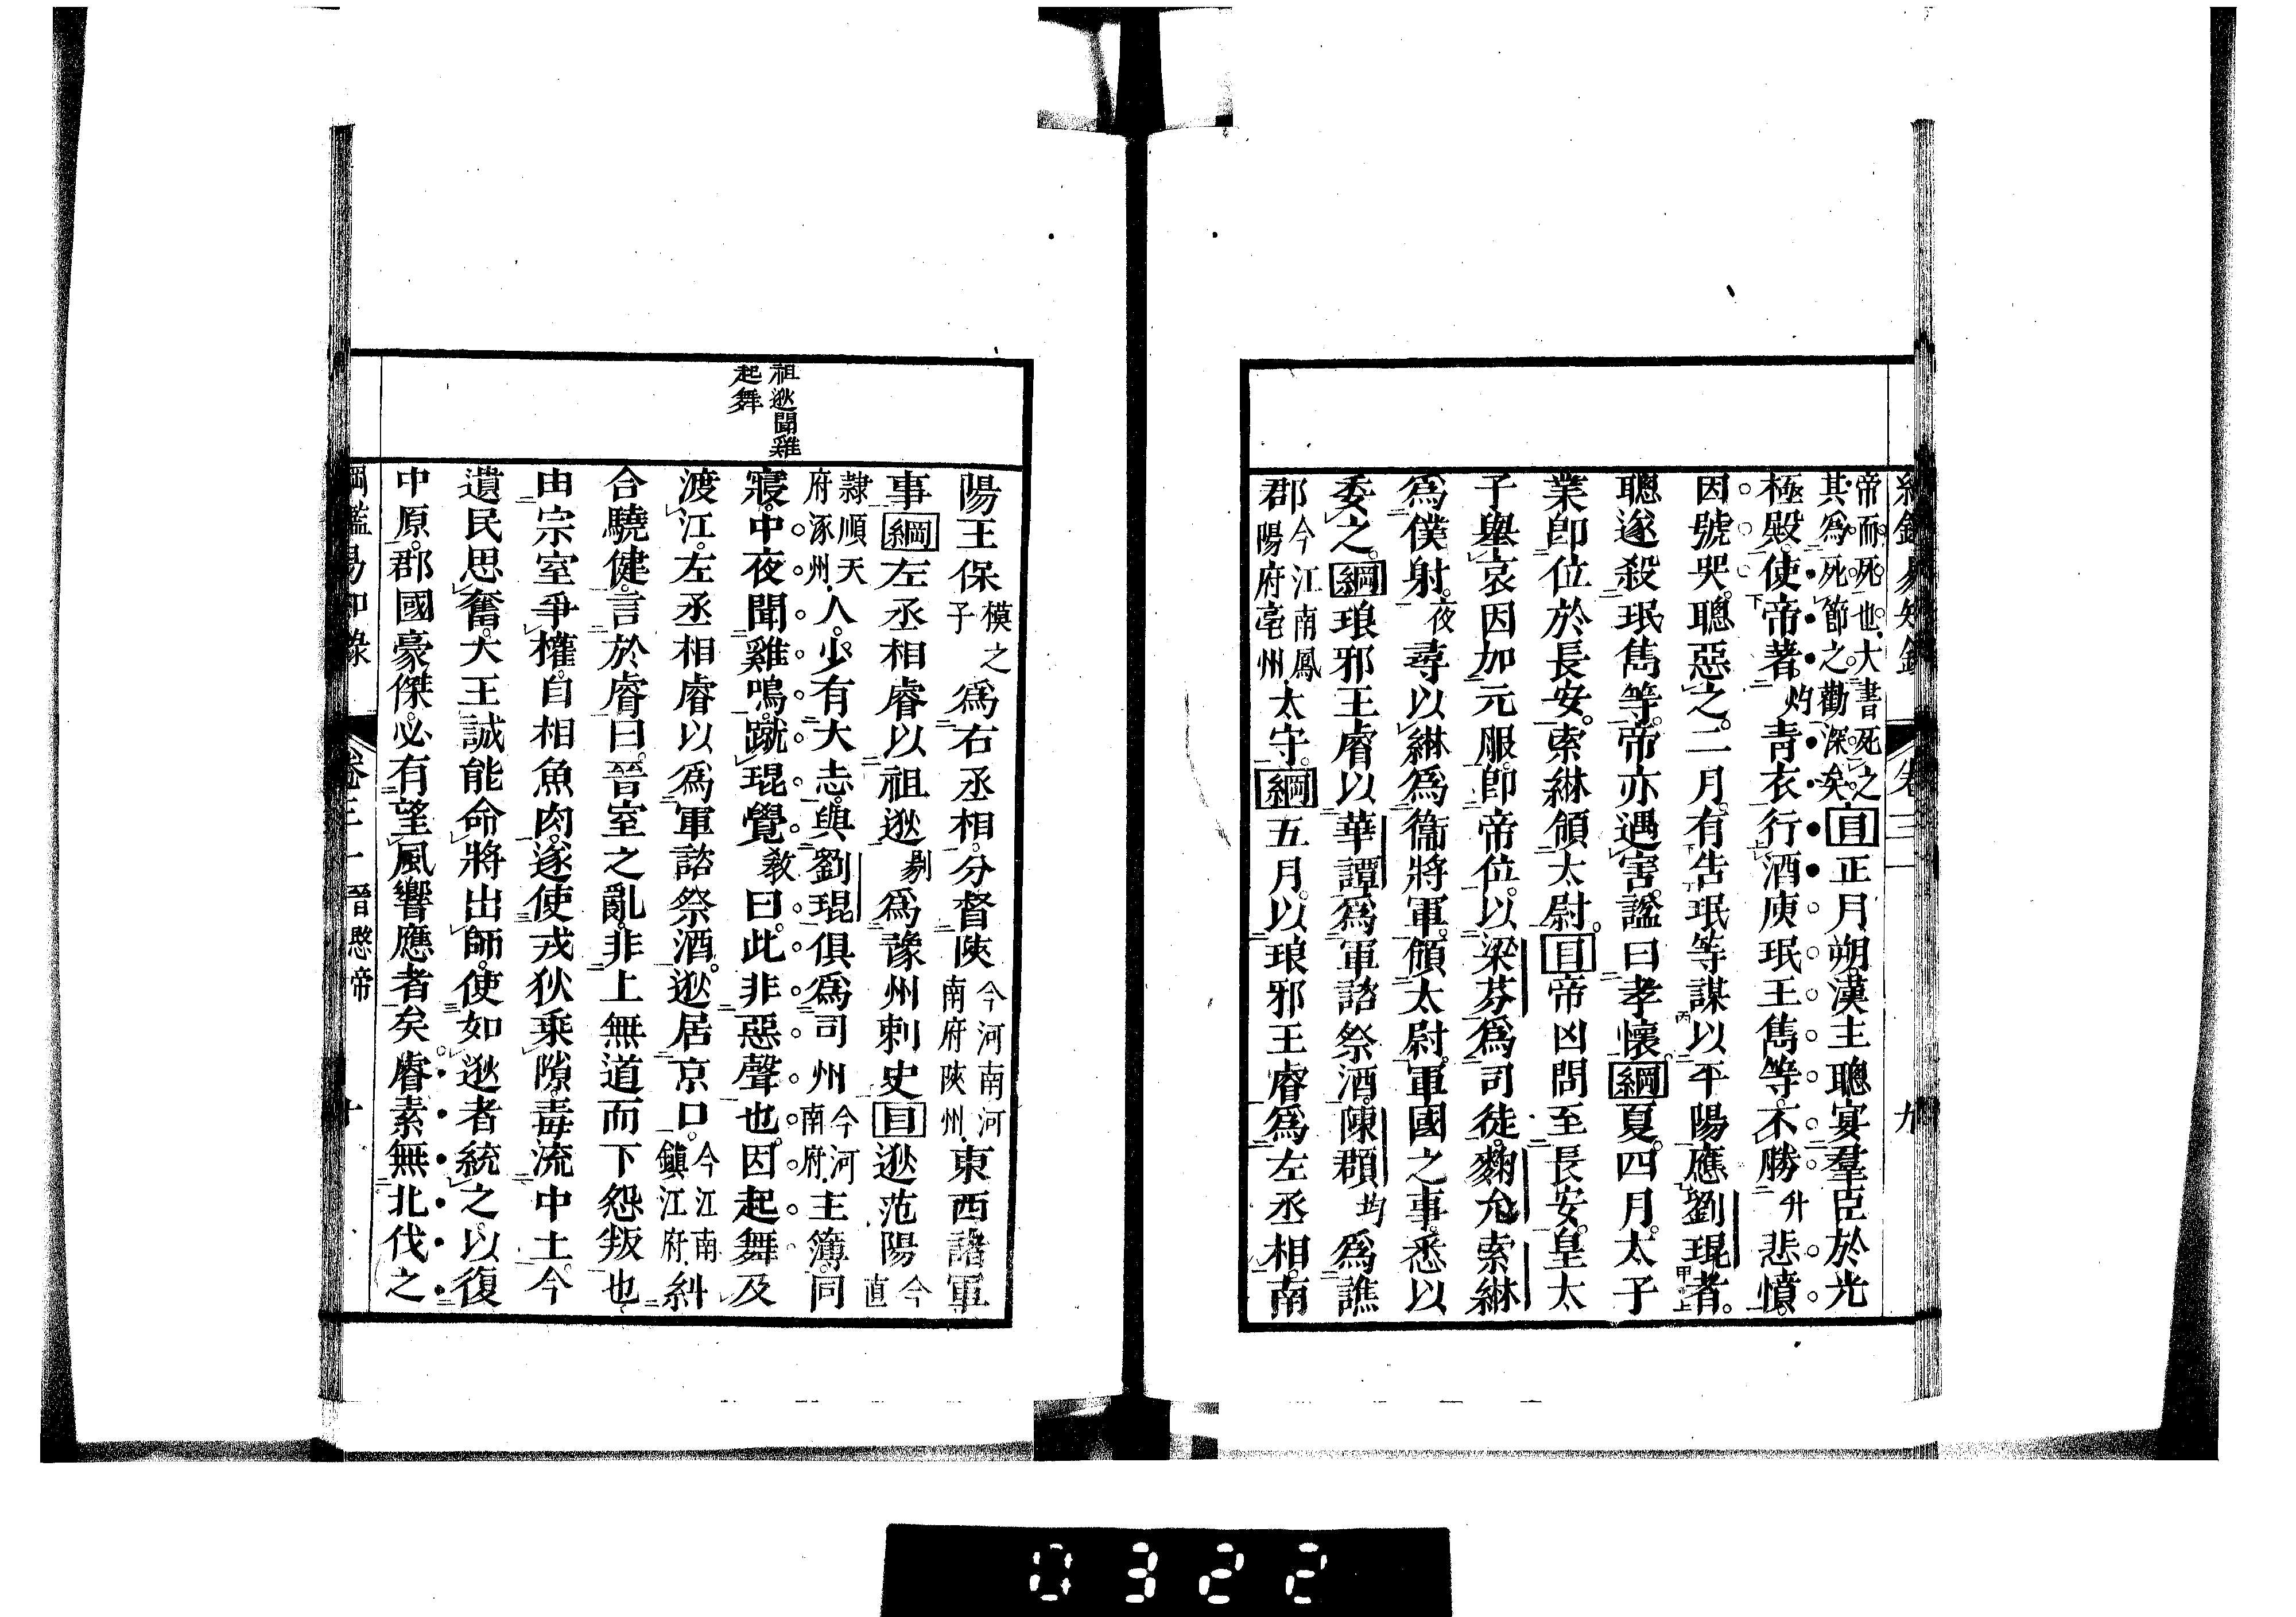 綱鑑易知錄 卷三一 九
帝而死也大書死之
其爲死節之勸深矣
目正月朔漢主聰宴羣臣於光
極殿使帝著灼青衣行酒庾珉王雋等不勝升悲憤
因號哭聰惡之二月有告珉等謀以平陽應劉琨者
聰遂殺珉雋等帝亦遇害謚曰孝懷綱夏四月太子
業卽位於長安索綝領太尉目帝凶問至長安皇太
子舉哀因加元服卽帝位以梁芬爲司徒麴允索綝
爲僕射夜尋以綝爲衞將軍領太尉軍國之事悉以
委之綱琅邪王睿以華譚爲軍諮祭酒陳頵均爲譙
郡今江南鳳陽府亳州太守綱五月以琅邪王睿爲左丞相南
祖逖聞雞
起舞
陽王保模之子爲右丞相分督陝今河南河南府陝州東西諸軍
事綱左丞相睿以祖逖剔爲豫州刺史目逖范陽今直
隸順天府涿州人少有大志與劉琨俱爲司州今河南府主簿同
寢中夜聞雞鳴蹴琨覺敎曰此非惡聲也因起舞及
渡江左丞相睿以爲軍諮祭酒逖居京口今江南鎭江府糾
合驍健言於睿曰晉室之亂非上無道而下怨叛也
由宗室爭權自相魚肉遂使戎狄乘隙毒流中土今
遺民思奮大王誠能命將出師使如逖者統之以復
中原郡國豪傑必有望風響應者矣睿素無北伐之
綱鑑易知錄 卷三一 晉愍帝 十
0322